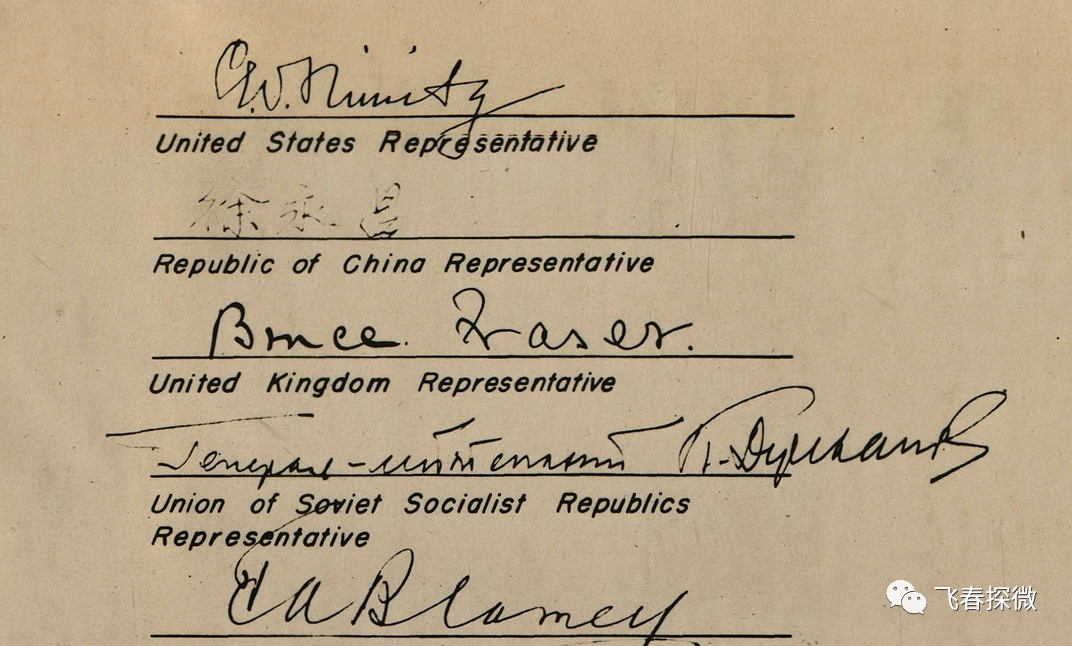 C.W. Nimitz
United States Representative
徐永昌
Republic of China Representative
Bruce Fraser.
United Kingdom Representative
Генерал-лейтенант
Union of Soviet Socialist Republics
Representative
T A Blamey
飞春探微